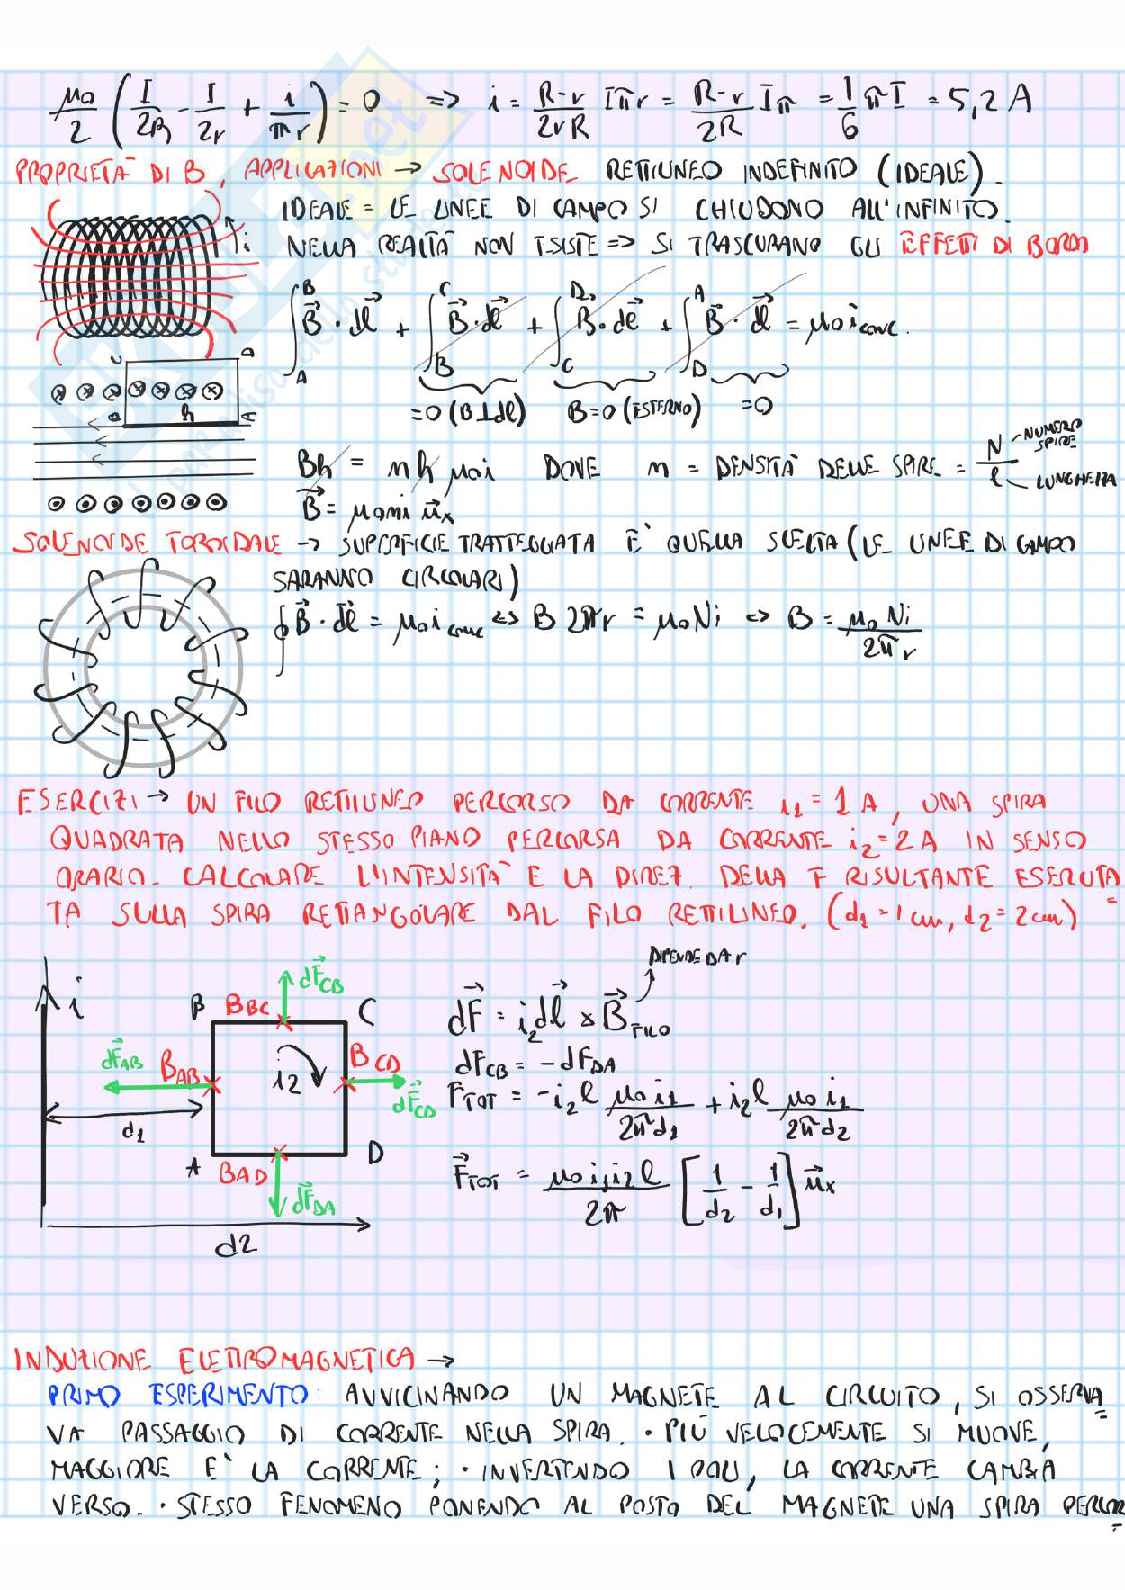 μ0/2 (I/2R - I/2r + i/πr) = 0 => i = R-r/2rR Iπr = R-r/2R Iπ = 1/6 πI = 5,2 A
PROPRIETÀ DI B, APPLICAZIONI → SOLENOIDE RETTILINEO INDEFINITO (IDEALE).
IDEALE = LE LINEE DI CAMPO SI CHIUDONO ALL'INFINITO.
i NELLA REALTÀ NON ESISTE => SI TRASCURANO GLI EFFETTI DI BORDO
∫_A^B B⃗ · dl⃗ + ∫_B^C B⃗ · dl⃗ + ∫_C^D B⃗ · dl⃗ + ∫_D^A B⃗ · dl⃗ = μ0 i conc.
=0 (B⊥dl) B=0 (ESTERNO) =0
h
Bh = nh μ0i DOVE n = DENSITÀ DELLE SPIRE = N/l NUMERO SPIRE LUNGHEZZA
B⃗ = μ0ni u⃗x
SOLENOIDE TOROIDALE → SUPERFICIE TRATTEGGIATA È QUELLA SCELTA (LE LINEE DI CAMPO
SARANNO CIRCOLARI)
∮ B⃗ · dl⃗ = μ0 i conc <=> B 2πr = μ0 Ni <=> B = μ0 Ni/2πr
ESERCIZI → UN FILO RETTILINEO PERCORSO DA CORRENTE i1 = 1 A, UNA SPIRA
QUADRATA NELLO STESSO PIANO PERCORSA DA CORRENTE i2 = 2 A IN SENSO
ORARIO. CALCOLARE L'INTENSITÀ E LA DIREZ. DELLA F RISULTANTE ESERCITA=
TA SULLA SPIRA RETTANGOLARE DAL FILO RETTILINEO. (d1 = 1 cm, d2 = 2 cm)
DIPENDE DA r
i B BBC dF⃗CB C
dF⃗ = i2 dl⃗ × B⃗FILO
dF⃗AB BAB i2 BCD dF⃗CD
dFCB = -dFDA
FTOT = -i2 l μ0 i1/2πd1 + i2 l μ0 i1/2πd2
d1
A BAD D dF⃗DA
F⃗TOT = μ0 i1 i2 l/2π [1/d2 - 1/d1] u⃗x
d2
INDUZIONE ELETTROMAGNETICA →
PRIMO ESPERIMENTO AVVICINANDO UN MAGNETE AL CIRCUITO, SI OSSERVA=
VA PASSAGGIO DI CORRENTE NELLA SPIRA. · PIÙ VELOCEMENTE SI MUOVE,
MAGGIORE E' LA CORRENTE; · INVERTENDO I POLI, LA CORRENTE CAMBIA
VERSO. · STESSO FENOMENO PONENDO AL POSTO DEL MAGNETE UNA SPIRA PERCOR=